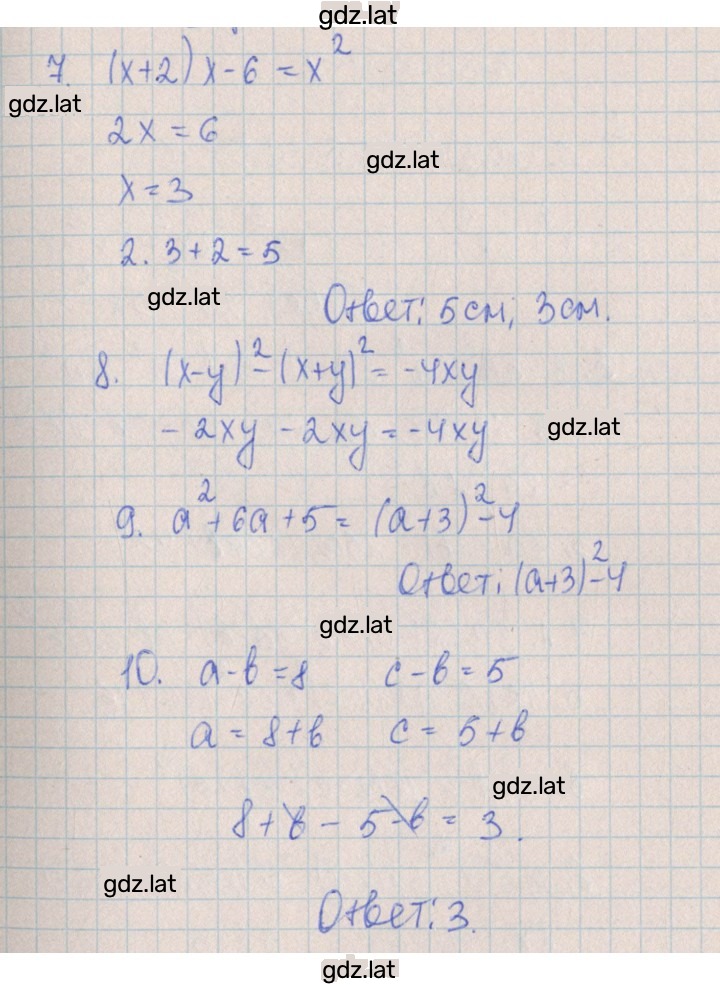 gdz.lat
7. (x+2)x-6=x²
gdz.lat
2x=6
gdz.lat
x=3
2. 3+2=5
gdz.lat
Ответ: 5см, 3см.
8. (x-y)²-(x+y)²=-4xy
-2xy-2xy=-4xy
gdz.lat
9. a²+6a+5=(a+3)²-4
Ответ: (a+3)²-4
gdz.lat
10. a-b=8 c-b=5
a=8+b c=5+b
gdz.lat
8+b-5-b=3.
gdz.lat
Ответ: 3.
gdz.lat